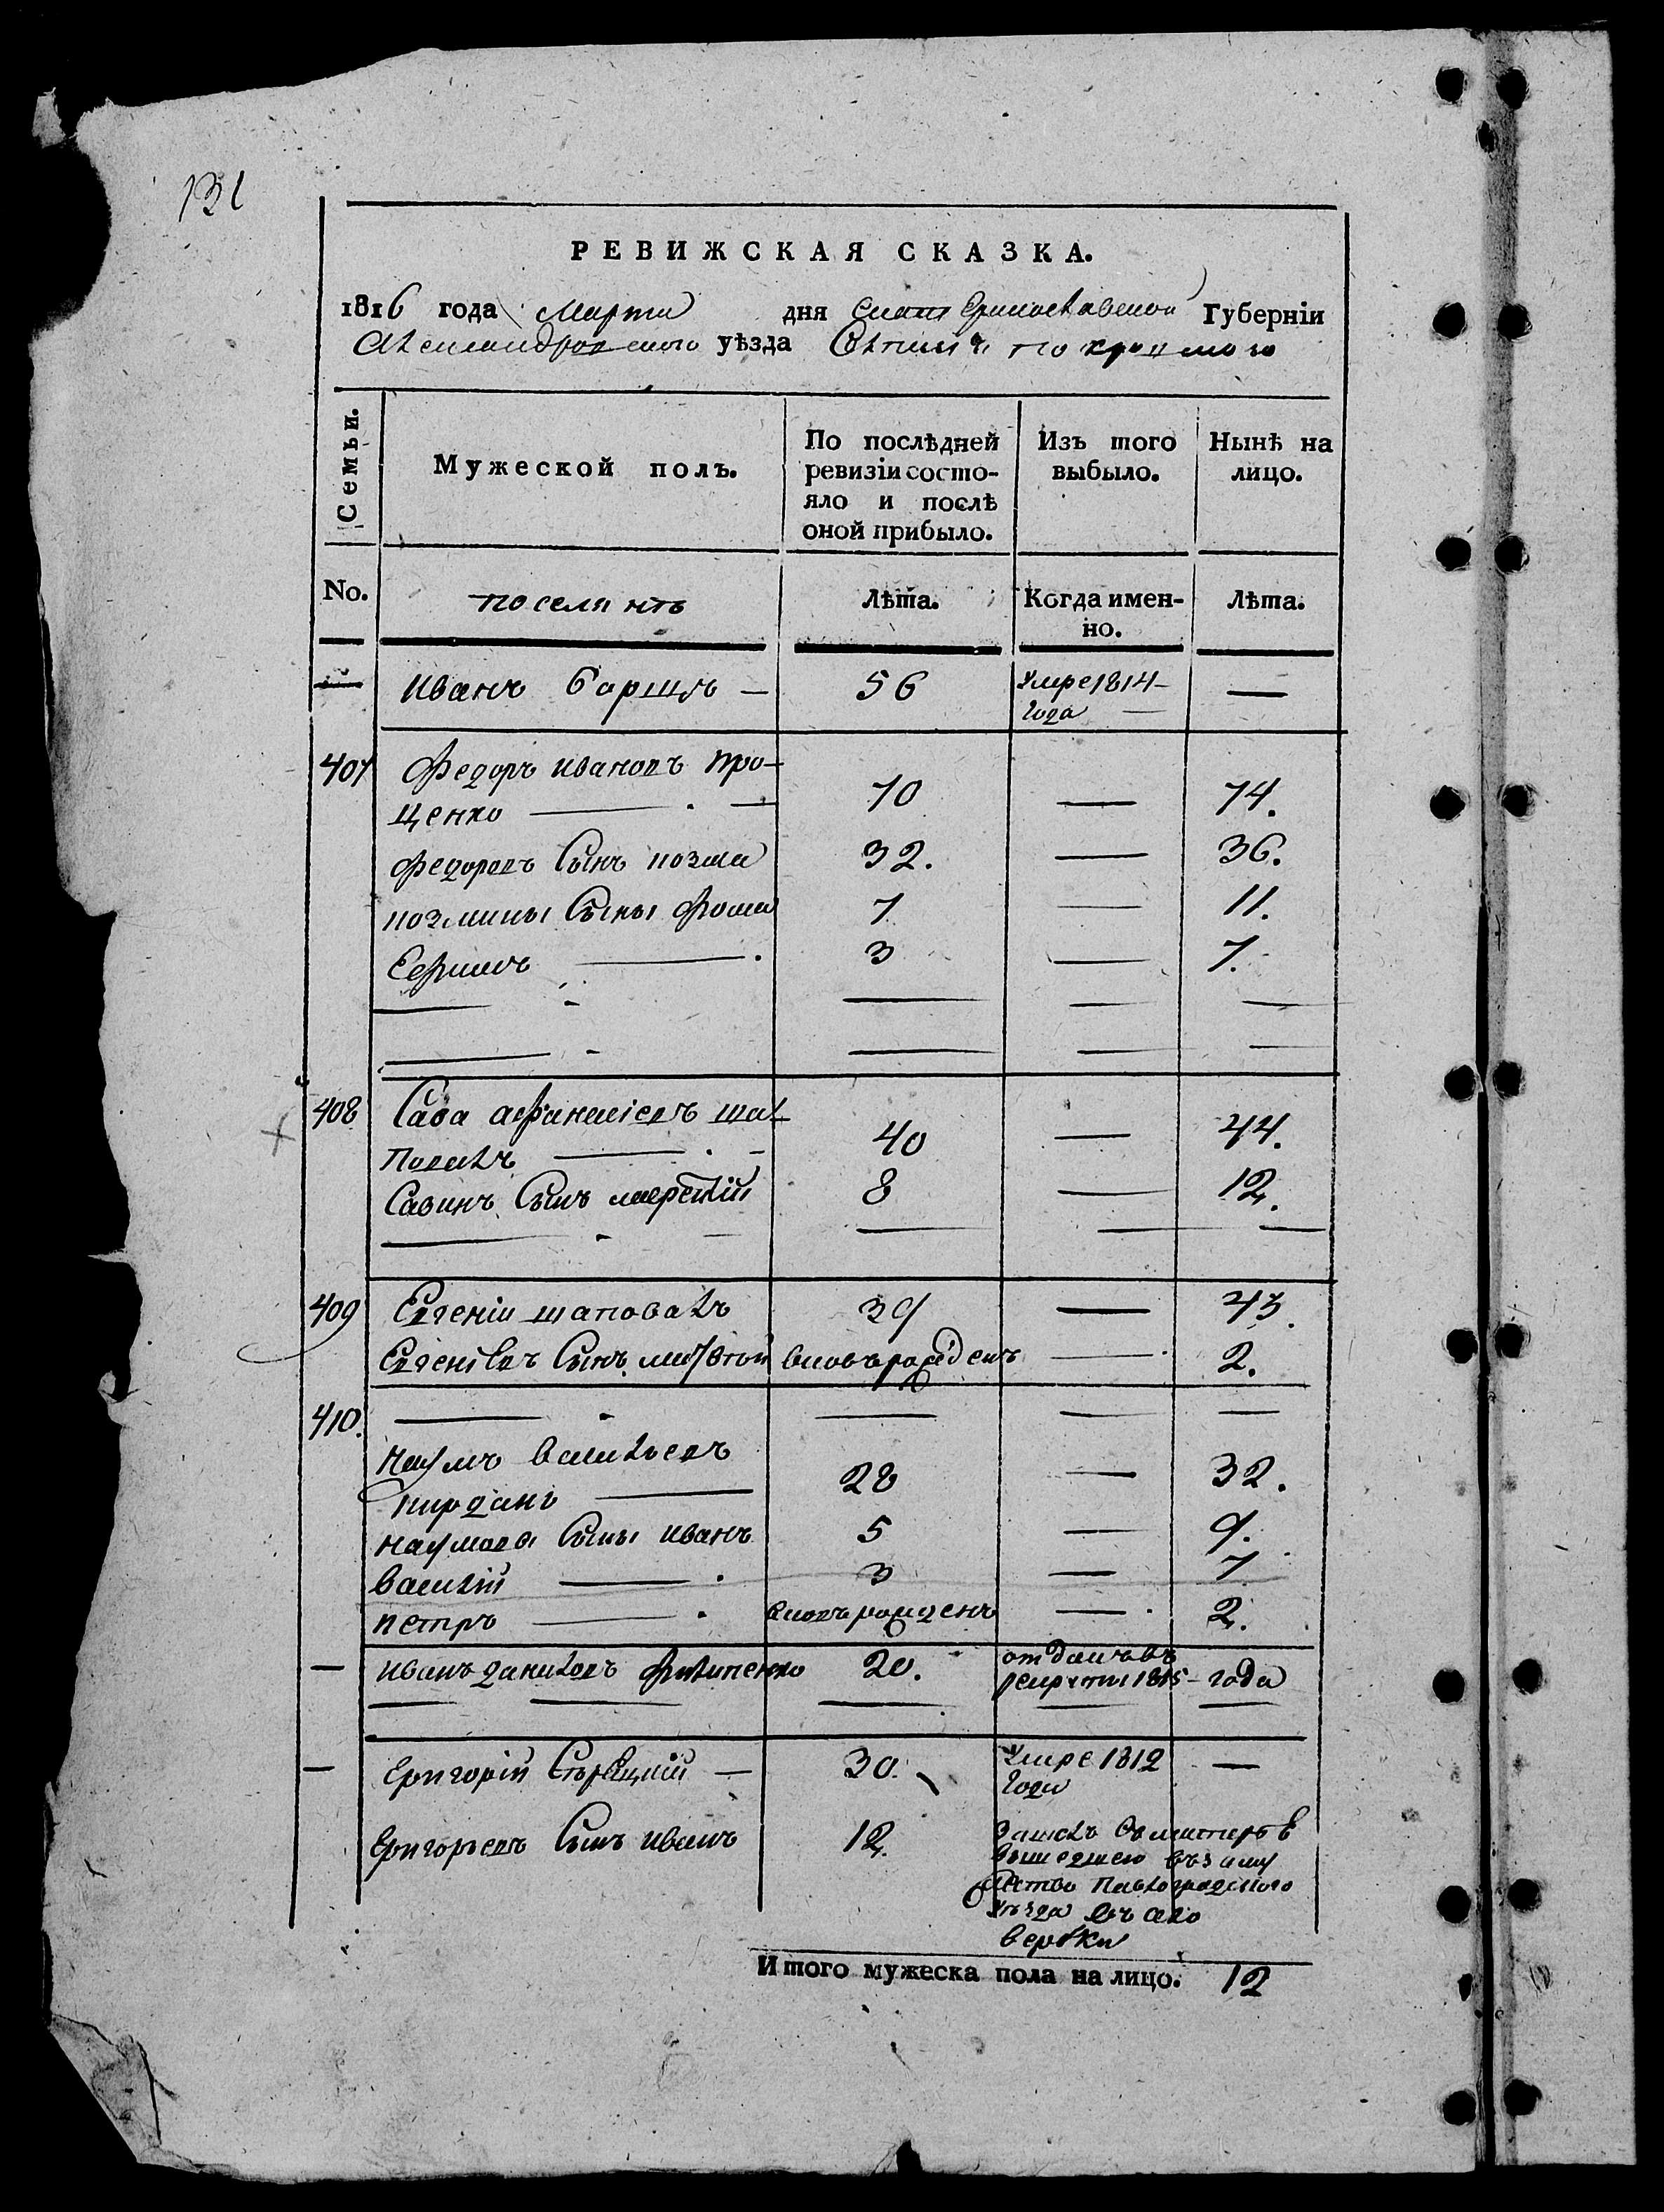 131
РЕВИЖСКАЯ СКАЗКА.
1816 года Марта дня Екатеринославской Губерніи
Александровского уѣзда Покровского
Семьи.
Мужеской полъ.
По послѣдней ревизіи состо-
яло и послѣ
оной прибыло.
Изъ того
выбыло.
Нынѣ на
лицо.
No.
поселянъ
Лѣта.
Когда имен-
но.
Лѣта.
Иванъ Боршъ — 56 умре 1814- —
года —
407 Федоръ Ивановъ Про-
ценко — 70 — 74.
Федоровъ Сынъ козма 32. — 36.
козмины Сыны Фома 7 — 11.
Ефимъ — 3 — 7.
408 Сава афанасіевъ шап-
ковалъ — 40 — 44.
Савинъ Сынъ 8 — 12.
409 Евгеніи шаповалъ 39 — 43.
Евгеніевъ Сынъ вновьрожденъ — 2.
410.
Наумъ васильевъ
кирданъ — 28 — 32.
наумовы Сыны иванъ 5 — 9.
василій — 3 — 7
петръ — вновьрожденъ — 2.
— иванъ даниловъ Филипенко 20. отданъ въ
рекруты 1815 - года
— Григорій 30. умре 1812 —
года
Григорьевъ Сынъ иванъ 12. зашолъ за матерью
вышедшею въ заму
жство Павлоградского
уѣзда въ село
вербки
Итого мужеска пола на лицо. 12